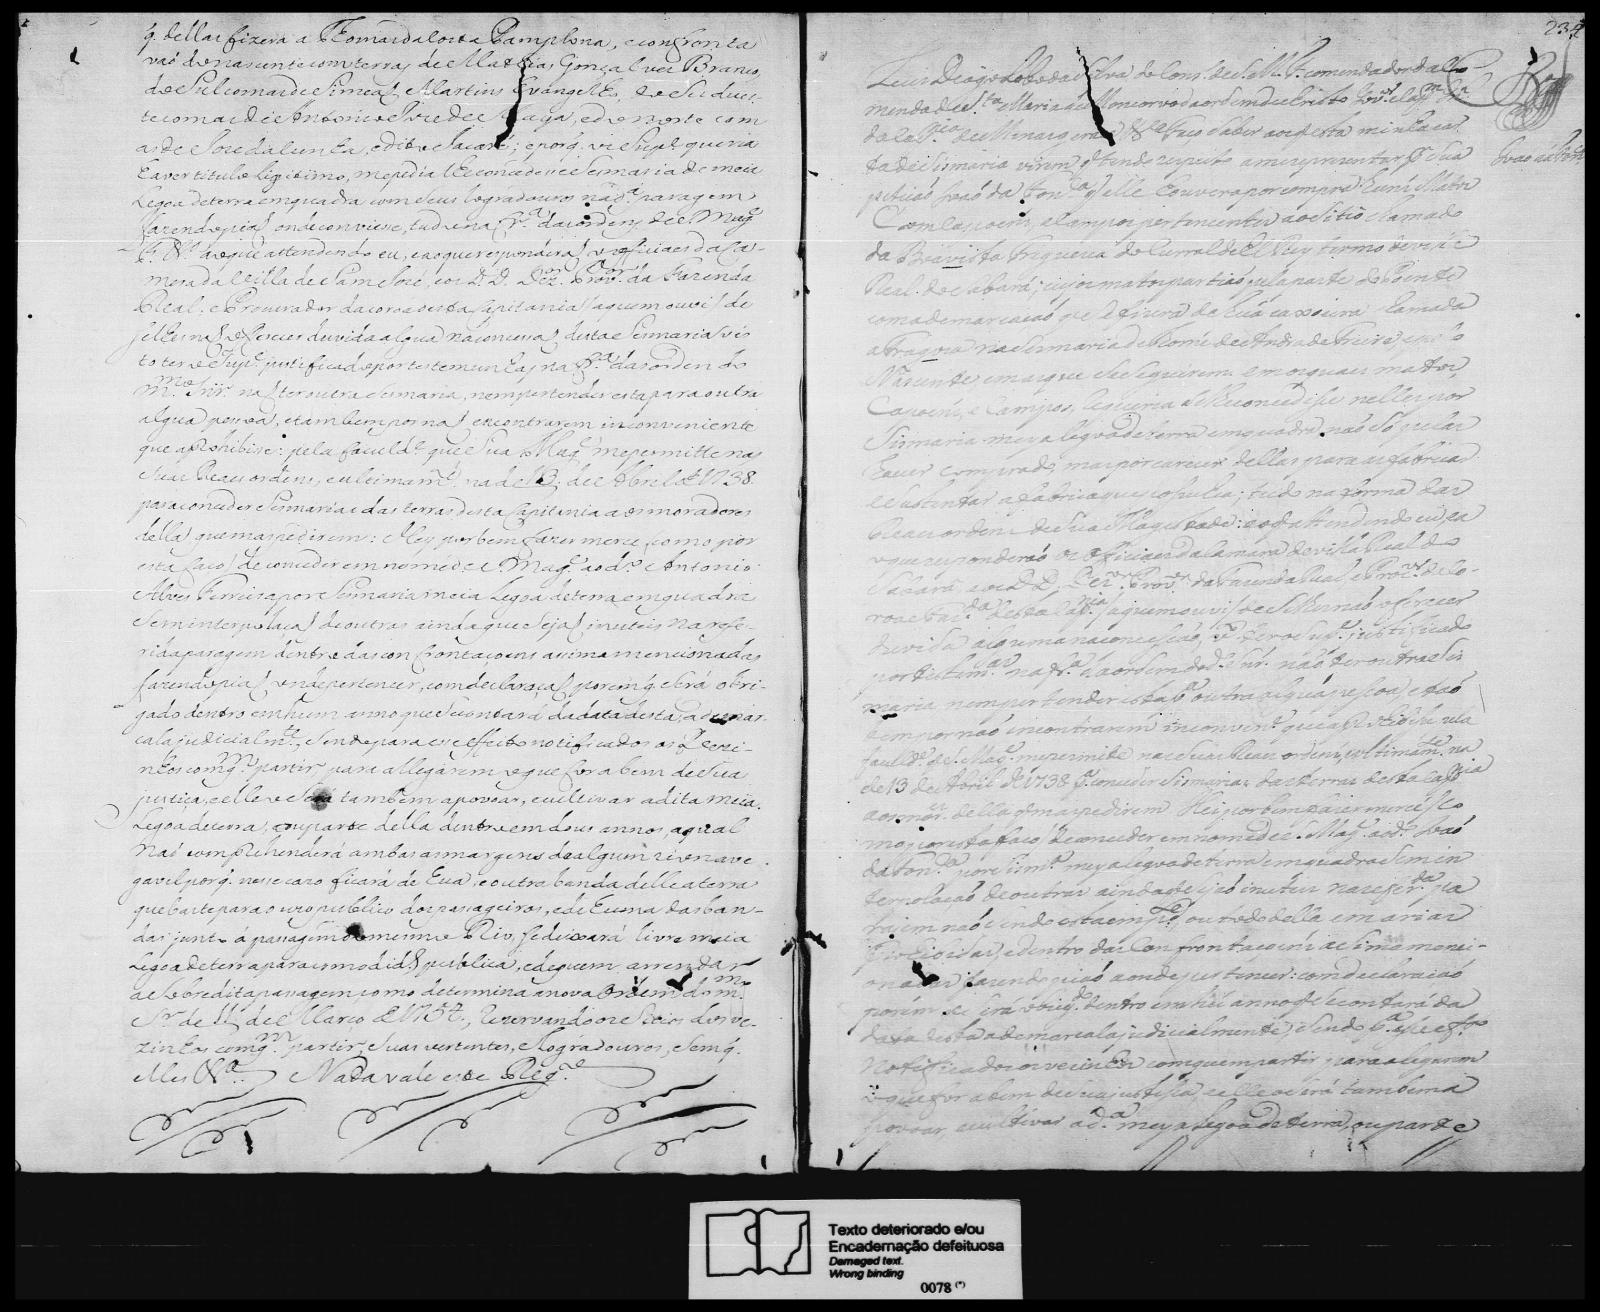 q. dellas fizera a Thomas da Costa Pamplona, e confronta
vaõ do nascente com terras de Mathias Gonçalves Branco,
do Sul com as de Simeaõ Martins Evangelho, do Sudues-
te com as de Antonio Braga, e do norte com
as de José da Cunha, e dito; e porq. o Supe. queria
haver titulo legitimo, me pedia lhe concedesse Sesmaria de meia
Legoa de terra em quadra com seus logradouros na da. paragem
fazendo piaõ onde conviesse, tudo na fra. das ordens de S. Mage.
F. &a. ao que attendendo eu, e ao que responderaõ os officiaes da Ca-
mera da Villa de Sam José, e os D. D. Dez. Provor. da Fazenda
Real, e Procurador da coroa desta Capitania (a quem ouvi) de
se lhes naõ offerecer duvida algua na concessaõ desta Sesmaria vis
to ter o Supe. justificado por testemunhas na fa. das ordens do
mmo. Snr. naõ ter outra Sesmaria, nem pertender esta para outra
algua pessoa, e tambem por naõ encontrarem inconveniente
que a prohibisse: pela faculde. que Sua Mage. me permitte nas
suas Reaes ordens, e ultimamte. na de 13 de Abril de 1738.
para conceder Sesmarias das terras desta Capitania aos moradores
della que mas pedirem: Hey por bem fazer merce (como por
esta faço) de conceder em nome de S. Mage. ao do. Antonio
Alves Ferreira por Sesmaria meia Legoa de terra em quadra
sem interpolaçaõ de outras ainda que sejaõ inuteis na refe-
rida paragem dentro das confrontaçoens asima mencionadas
fazendo piaõ onde pertencer, com declaraçaõ porem q. será obri-
gado dentro em hum anno que se contará da data desta, a demar-
cala judicialmte., sendo para esse effeito notificados os vezi-
nhos com q. partir para allegarem o que for a bem de sua
justiça, e elle o será tambem a povoar, e cultivar a dita meia
Legoa de terra, ou parte della dentro em dous annos, a qual
naõ comprehenderá ambas as margens de algum rio nave
gavel porq. nesse cazo ficará de hua, e outra banda delle a terra
que baste para o uzo publico dos passageiros, e de huma das ban-
das junto á passagem do mesmo Rio, se deixará livre meia
Legoa de terra para comodidade publica, e de quem arrendar
a sobredita passagem como determina a nova Ordem do mmo.
Snr. de 11 de Março de 1754., rezervando os sitios dos ve-
zinhos com qm. partir, suas vertentes, e logradouros, sem q.
elles &a. Nada vale este Rego.
234
Luis Diogo Lobo da Silva do Cons. de S. M. F. comendador da Co
menda de Sta. Maria de Moncorvo da ordem de Christo
de Minas geraes &a. Faço saber aos q. esta minha car
Joaõ da Fonca.
ta de Sismaria virem q. tendo respeito a me reprezentar por sua
petiçaõ Joaõ da Fonca. q. elle houvera por compra huns Matos
Capoens, e Campos pertencentes ao sitio chamado
da Boavista freguezia do Curral de El Rey termo de villa
Real de Sabará; cujos matos partiaõ pela parte do Poente
com a demarcaçaõ q. se fizera da huã caxoeira chamada
a Fragoza na Sesmaria de Thomé de Andrade Freire, e p.
Nascente em os que se seguirem e nos quaes matos,
Capoens, e Campos, queria se lhe concedesse nelles por
Sismaria meya legoa de terra em quadra, naõ só pelas
haver comprado, mas por carecer dellas para as fabricar
e sustentar a fabrica que possuhia; tudo na forma das
Reaes ordens de Sua Magestade: ao q. attendendo eu, e a
o que responderaõ os officiaes da Camara de villa Real do
Sabará, e os D. D. Dez. Provor. da Fazenda Real, e Procor. da Co-
roa e Fazda. desta Capnia. (a quem ouvi) de se lhes naõ offerecer
duvida alguma na concessaõ, por ter o Supe. justificado
por testemas. na fra. da ordem do do. Snr. naõ ter outra Sis
maria nem pertender esta pa. outra algua pessoa, e taõ
bem por naõ encontrarem inconvente. que a prohibise pela
faculde. q. S. Mage. me permite nas suas Reaes ordens, e ultimamte. na
de 13 de Abril de 1738 pa. conceder Sismarias das terras desta Capnia
aos mores. della q. mas pedirem Hei por bem fazer merce (co
mo por esta faço) de conceder em nome de S. Mage. ao do. Joaõ
da Fonca. por sismra. meya legoa de terra em quadra sem in
terpolaçaõ de outras ainda q. sejaõ inuteis na referda. pa
ragem naõ sendo esta em pte. ou todo della em areas
prohibidas, e dentro das Confrontaçoens asima menci-
onadas fazendo piaõ aonde pertencer: com declaraçaõ
porem q. será obrigdo. dentro em hũ anno q. se contará da
data desta a demarcala judicialmente, sendo pa. esse effto.
Notificados os vezinhos com quem partir para alegarem
o que for a bem de sua justiça, e elle o será tambem a
povoar e cultivar a da. meya legoa de terra, ou parte
Texto deteriorado e/ou
Encadernação defeituosa
Damaged text.
Wrong binding
0078 (*)